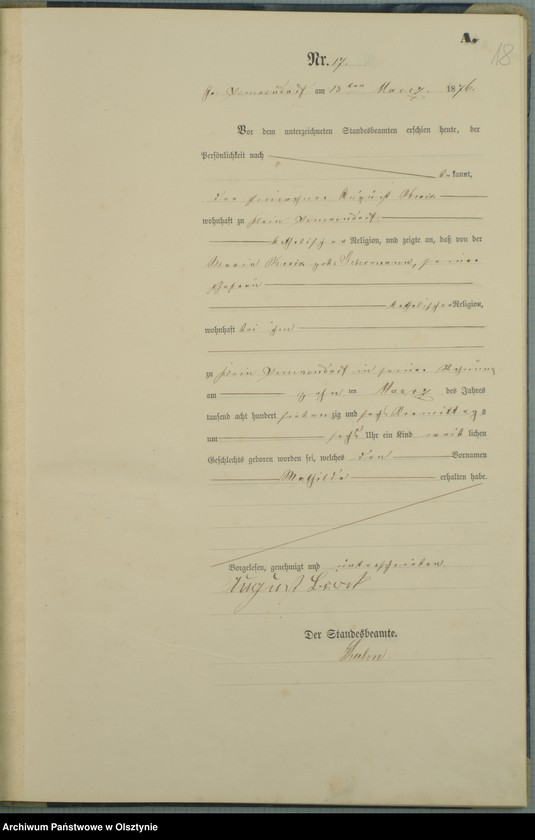 A.
18
Nr. 17.
Gr. am 13 ten Maerz 1876.
Vor dem unterzeichneten Standesbeamten erschien heute, der
Persönlichkeit nach
be kannt,
der August
wohnhaft zu Klein
katholischer Religion, und zeigte an, daß von der
Maria geb. seiner
Ehefrau
katholischer Religion,
wohnhaft bei ihm
zu Klein in seiner Wohnung
am zehn ten Maerz des Jahres
tausend acht hundert sieben zig und sechs Vormittags
um sechs Uhr ein Kind weib lichen
Geschlechts geboren worden sei, welches den Vornamen
Mathilde erhalten habe.
Vorgelesen, genehmigt und unterschrieben
August
Der Standesbeamte.
Archiwum Państwowe w Olsztynie